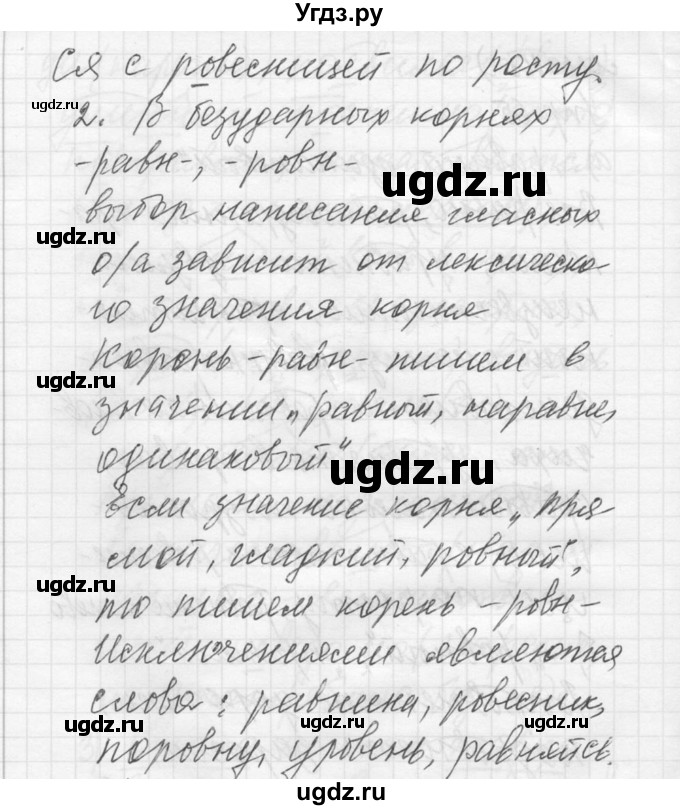 Угдз.ру
ся с ровесницей по росту.
2. В безударных корнях
-равн-, -ровн-
выбор написания гласных
о/а зависит от лексическо-
го значения корня
Корень -равн- пишем в
значении „равный, наравне,
одинаковый"
Если значение корня „пря
мой, гладкий, ровный",
то пишем корень -ровн-
Исключениями являются
слова: равнина, ровесник,
поровну, уровень, равняйсь.
ugdz.ru
ugdz.ru
ugdz.ru
ugdz.ru
ugdz.ru
ugdz.ru
ugdz.ru
ugdz.ru
ugdz.ru
ugdz.ru
ugdz.ru